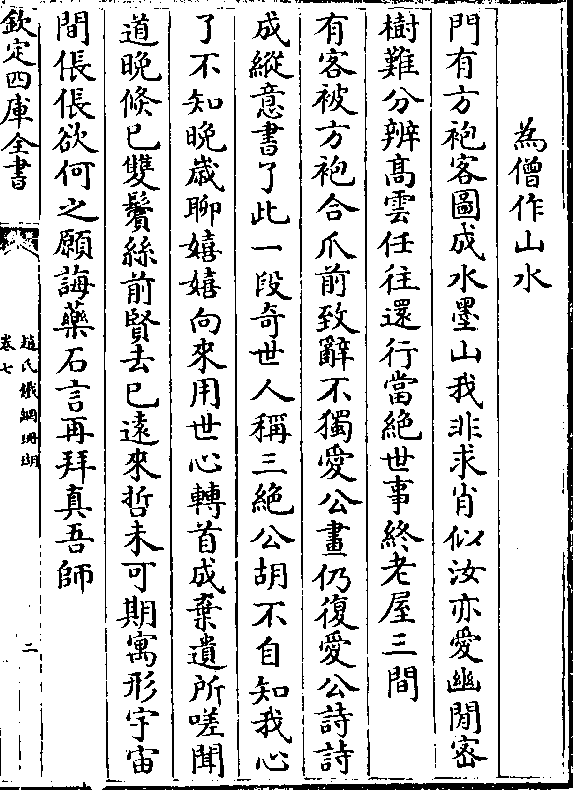 為僧作山水
門有方袍客圖成水墨山我非求肖似汝亦愛幽閒密
樹難分辨髙雲任往還行當絶世事終老屋三間
有客被方袍合爪前致辭不獨愛公畫仍復愛公詩詩
成縱意書了此一段奇世人稱三絶公胡不自知我心
了不知晚嵗聊嬉嬉向來用世心轉首成棄遺所嗟聞
道晚倐已雙鬢絲前賢去已遠來哲未可期寓形宇宙
間倀倀欲何之願誨藥石言再拜真吾師
欽定四庫全書
趙氏鐵網珊瑚
卷七
二